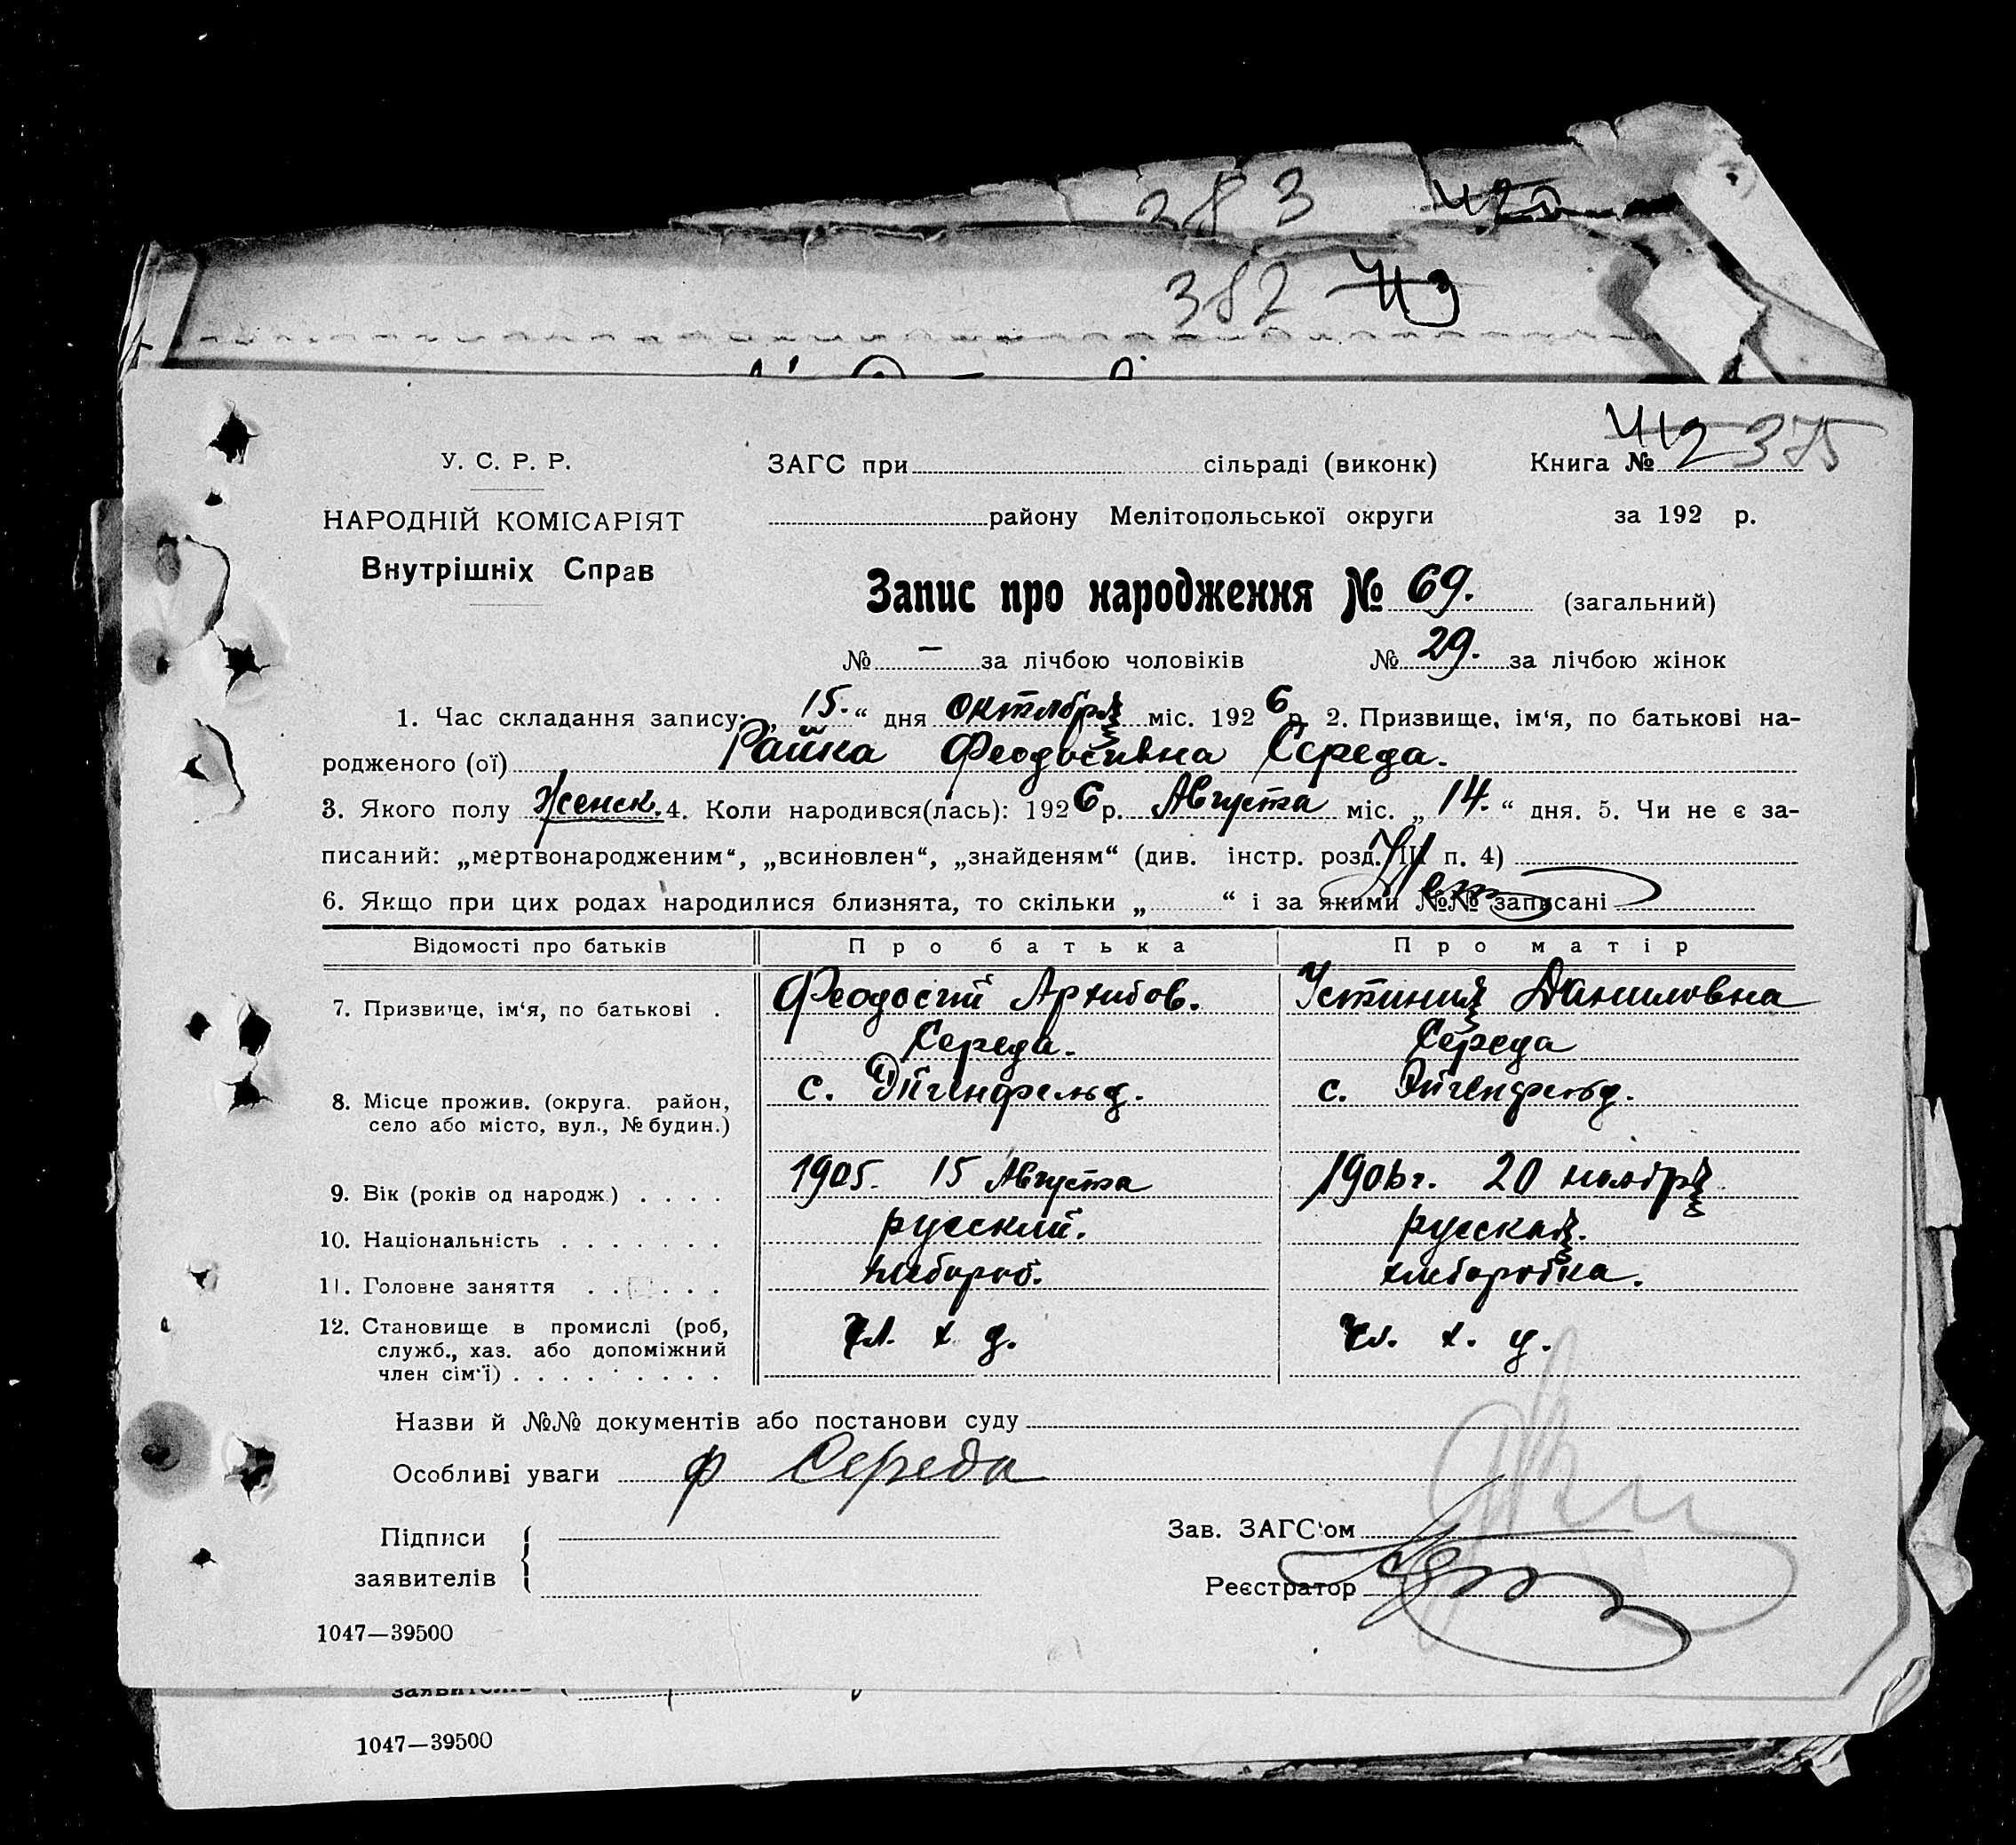 283 420
382 413
412 375
У. С. Р. Р. ЗАГС при сільраді (виконк) Книга №
НАРОДНІЙ КОМІСАРІЯТ району Мелітопольської округи за 192 р.
Внутрішніх Справ
Запис про народження № 69. (загальний)
№ — за лічбою чоловіків № 29. за лічбою жінок
1. Час складання запису: „ 15. “ дня октября міс. 1926 р. 2. Призвище, ім‘я, по батькові на-
родженого (ої) Райка Феодосивна Середа.
3. Якого полу Женск. 4. Коли народився(лась): 1926 р. Августа міс. „ 14. “ дня. 5. Чи не є за-
писаний: „мертвонародженим“, „всиновлен“, „знайденям“ (див. інстр. розд. III п. 4)
6. Якщо при цих родах народилися близнята, то скільки „ “ і за якими №№ записані Нет
Відомості про батьків Про батька Про матір
7. Призвище, ім‘я, по батькові . Феодосий Архипов. Устиния Даниловна
Середа. Середа
8. Місце прожив. (округа. район, с. Эйгенфельд. с. Эйгенфельд.
село або місто, вул., № будин.)
9. Вік (років од народж.) . . . . 1905. 15 Августа 1906 г. 20 ноября
10. Національність . . . . . . . русский. русская.
11. Головне заняття . . . . . . хлебороб. хлеборобка.
12. Становище в промислі (роб, чл. х д. чл. х. д.
служб., хаз. або допоміжний
член сім‘ї) . . . . . . . . .
Назви й №№ документів або постанови суду
Особливі уваги ф Середа
Підписи Зав. ЗАГС‘ом
заявителів Реєстратор
1047—39500
заявителів
1047—39500